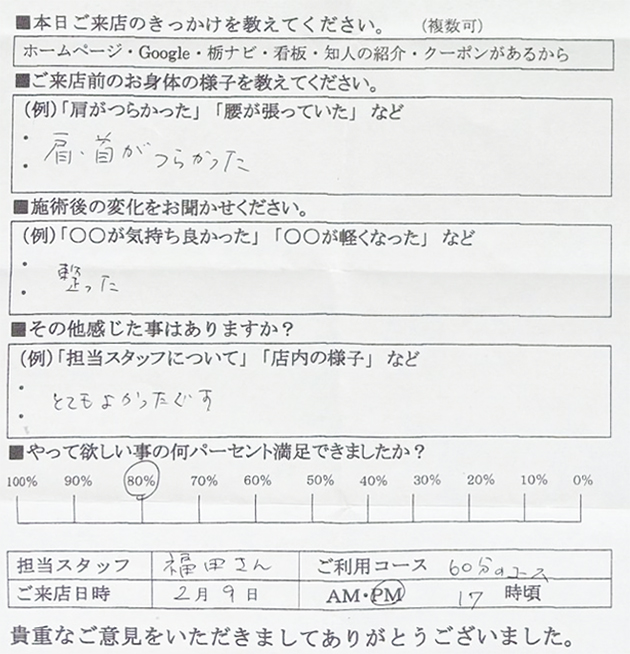 ■本日ご来店のきっかけを教えてください。 (複数可)
ホームページ・Google・栃ナビ・看板・知人の紹介・クーポンがあるから
■ご来店前のお身体の様子を教えてください。
(例)「肩がつらかった」「腰が張っていた」など
・肩、首がつらかった
・
■施術後の変化をお聞かせください。
(例)「〇〇が気持ち良かった」「〇〇が軽くなった」など
・整った
・
■その他感じた事はありますか?
(例)「担当スタッフについて」「店内の様子」など
・とてもよかったです
・
■やって欲しい事の何パーセント満足できましたか?
100% 90% 80% 70% 60% 50% 40% 30% 20% 10% 0%
担当スタッフ 福田さん ご利用コース 60分のコース
ご来店日時 2月9日 AM・PM 17時頃
貴重なご意見をいただきましてありがとうございました。